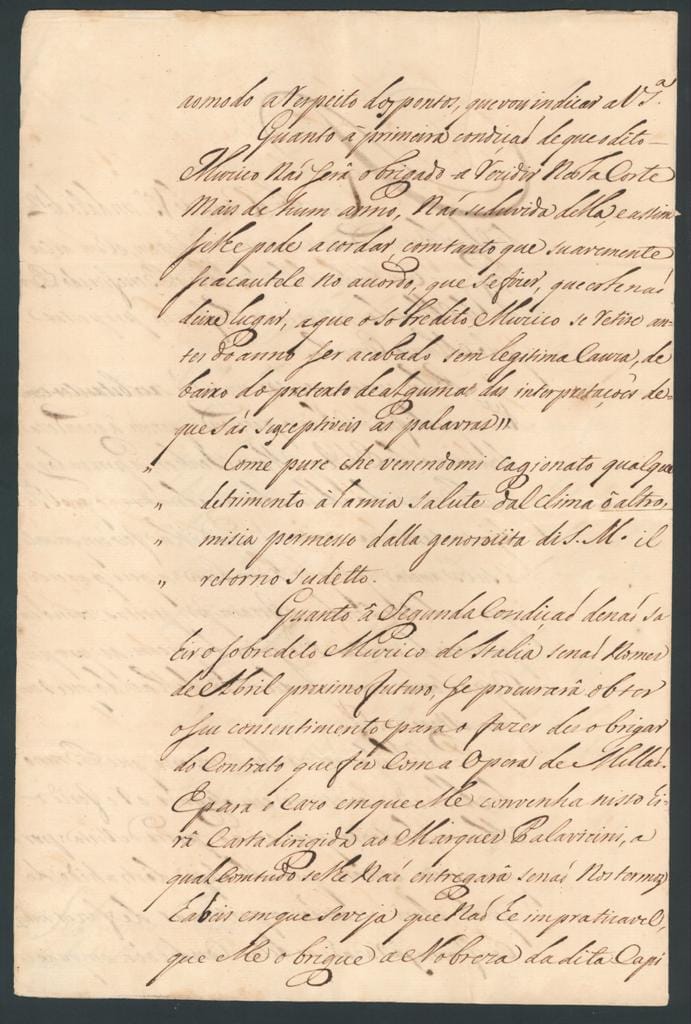 ao modo a respeito dos pontos, que vou indicar a V S.ª
Quanto á primeira condicaõ de que o dito
Muzico Naõ será obrigado a Rezidir Nesta Corte
Mais de hum anno, Naõ se duvida della, e assim
se lhe pode acordar, comtanto que suavemente
se acautele no acordo, que se fizer, que este naõ
deixe lugar, a que o sobredito Muzico se retire an-
tes do anno ser acabado sem legitima Cauza, de
baixo do pretexto de algumas das interpretações de-
que saõ susceptiveis as palavras "
" Come pure che venendomi cagionato qualque
" detrimento à la mia salute dal clima ò altro,
" misia permesso dalla generosita di S. M. il
" retorno sudetto.
Quanto â Segunda Condicaõ de naõ sa
hir o sobredeto Muzico de Italia senaõ No mes
de Abril proximo futuro, se procurarâ obter
o seu consentimento para o fazer des obrigar
do Contrato que fez Com a Opera de Millaõ.
E para o Cazo em que elle convenha nisto hi-
râ Carta dirigida ao Marques Palavicini, a
qual Comtudo se lhe Naõ entregarâ senaõ Nos termos
habeis em que se veja que Naõ he impraticavel,
que elle obrigue a Nobreza da dita Capi